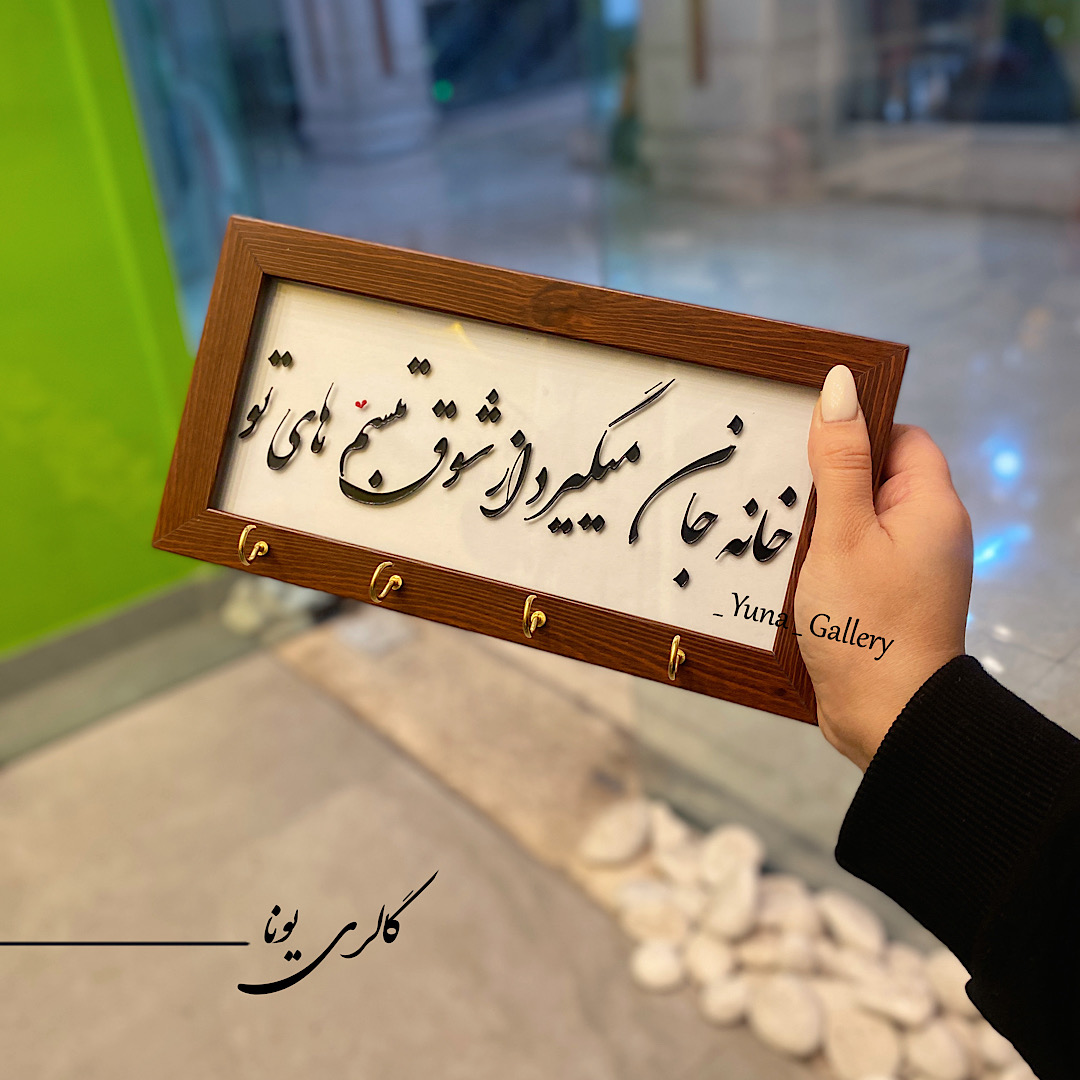 خانه جان میگیرد از شوق تبسم های تو
_ Yuna _ Gallery
گالری یونا